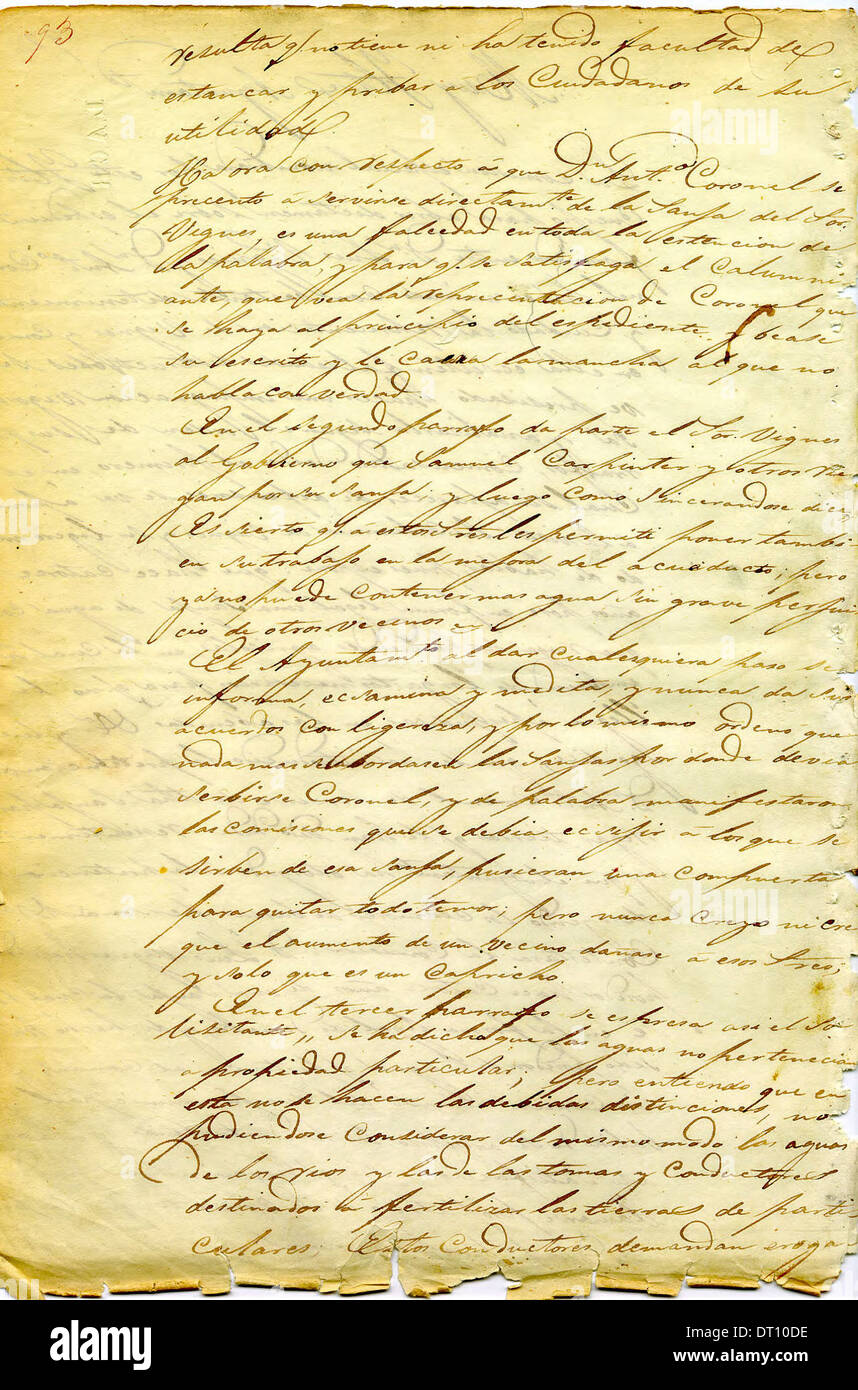 93
resulta q.e no tiene ni ha tenido facultad de
estancar y pribar a los Ciudadanos de su
utilidad.
Haora con respecto á que Dn. Anto. Coronel se
precento á servirse directamte. de la Sanja del Sor.
Vignes, es una falcedad en toda la estencion de
la palabra, y para q.e se satisfaga el Calumni
ante, que vea la reprecentacion de Coronel que
se haya al principio del espediente. béase
su escrito y le caera la mancha al que no
habla con verdad.
En el segundo parrafo da parte el Sor. Vignes
al Gobierno que Samuel Carpinter y otros rie
gan por su Sanja; y luego como sincerandose dice,
Es sierto q.e á estos tres les permiti poner tambi
en su trabajo en la mejora del acuducto; pero
ya no puede contener mas agua sin grave perjui
cio de otros vecinos
El Ayuntamto. al dar cualesquiera paso se
informa, ecsamina y medita, y nunca da sus
acuerdos con ligereza, y por lo mismo ordenó que
nada mas se abordasen las Sanjas por donde devia
serbirse Coronel, y de palabra manifestaron
las comisiones que se debia ecsijir á los que se
sirben de esa Sanja, pusieran una compuerta
para quitar todo temor; pero nunca creyo ni cre
que el aumento de un vecino dañase a esos tres;
y solo que es un Capricho.
En el tercer parrafo se espresa asi el So
licitante „ Se ha dicho que las aguas no pertenecian
a propiedad particular; pero entiendo que en
esto no se hacen las debidas distinciones, no
pudiendose considerar del mismo modo las aguas
de los rios y las de las tomas y conductores
destinados á fertilizar las tierras de parti
culares. Estos conductores demandan eroga
alamy
alamy
Image ID: DT10DE
www.alamy.com